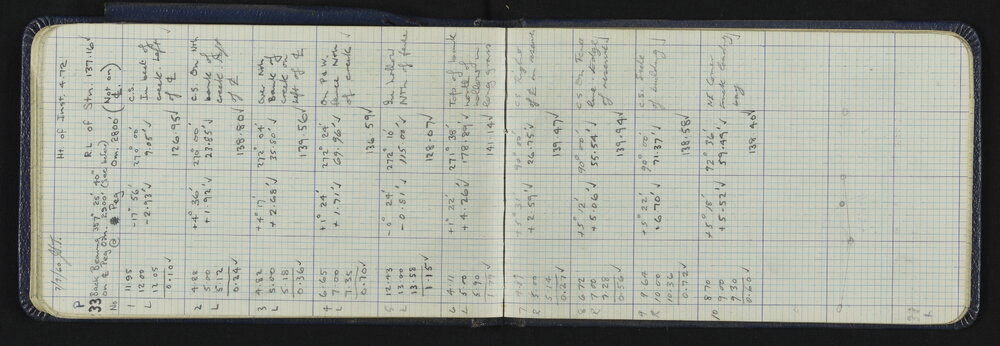 7/7/60 Ht. of Inst. 4.72
P
'33 Back Bearing 357° 25' 40" R.L of Stn. 137.16 ✓
on ₵ Peg Om. 2900' (see below) (Not on ₵)
No @ Peg Om. 2800'
1 11.95 -17° 56' 270° 00' C.S.
L 12.00 -2.93' ✓ 9.05' ✓ In bed of
12.05 creek. Left
0.10 ✓ 126.95 ✓ of ₵
2 4.88 +4° 36' 270° 00' C.S. On Nth
L 5.00 +1.92' ✓ 23.85' ✓ bank of
5.12 creek. Left
0.24 ✓ 138.80 ✓ of ₵
3 4.82 +4° 17' 272° 04' Over Nth
L 5.00 +2.68' ✓ 35.80' ✓ Bank of
5.18 creek on
0.36 ✓ 139.56 ✓ Left of ₵
4 6.65 +1° 24' 272° 24' On P & W.
L 7.00 +1.71' ✓ 69.96' ✓ fence Nth
7.35 of creek ✓
0.70 ✓ 136.59 ✓
5 12.43 -0° 24' 272° 10' In hollow
L 13.00 -0.81' ✓ 115.00' ✓ Nth of fence
13.58
1.15 ✓ 128.07 ✓
6 4.11 +1° 22' 271° 38' Top of bank
L 5.00 +4.26' ✓ 178.89' ✓ north of
5.90 hollow in
1.79 ✓ 141.14 ✓ long grass
7 +5° 31' 90° 00' C.S. Right
R 5.00 +2.59' ✓ 26.75' ✓ of ₵ in reserve
5.14
0.27 ✓ 139.47 ✓
8 6.72 +5° 12' 90° 00' C.S. On Fence
R 7.00 +5.06' ✓ 55.54' ✓ line. Edge
7.28 of reserve
0.56 ✓ 139.94 ✓
9 9.64 +5° 22' 90° 00' C.S. Face
R 10.00 +6.70' ✓ 71.37' ✓ of building
10.36
0.72 ✓ 138.58 ✓
10 8.70 +5° 18' 92° 36' NE Corner
9.00 +5.52' ✓ 59.49' ✓ brick
9.30
0.60 ✓ 138.40 ✓